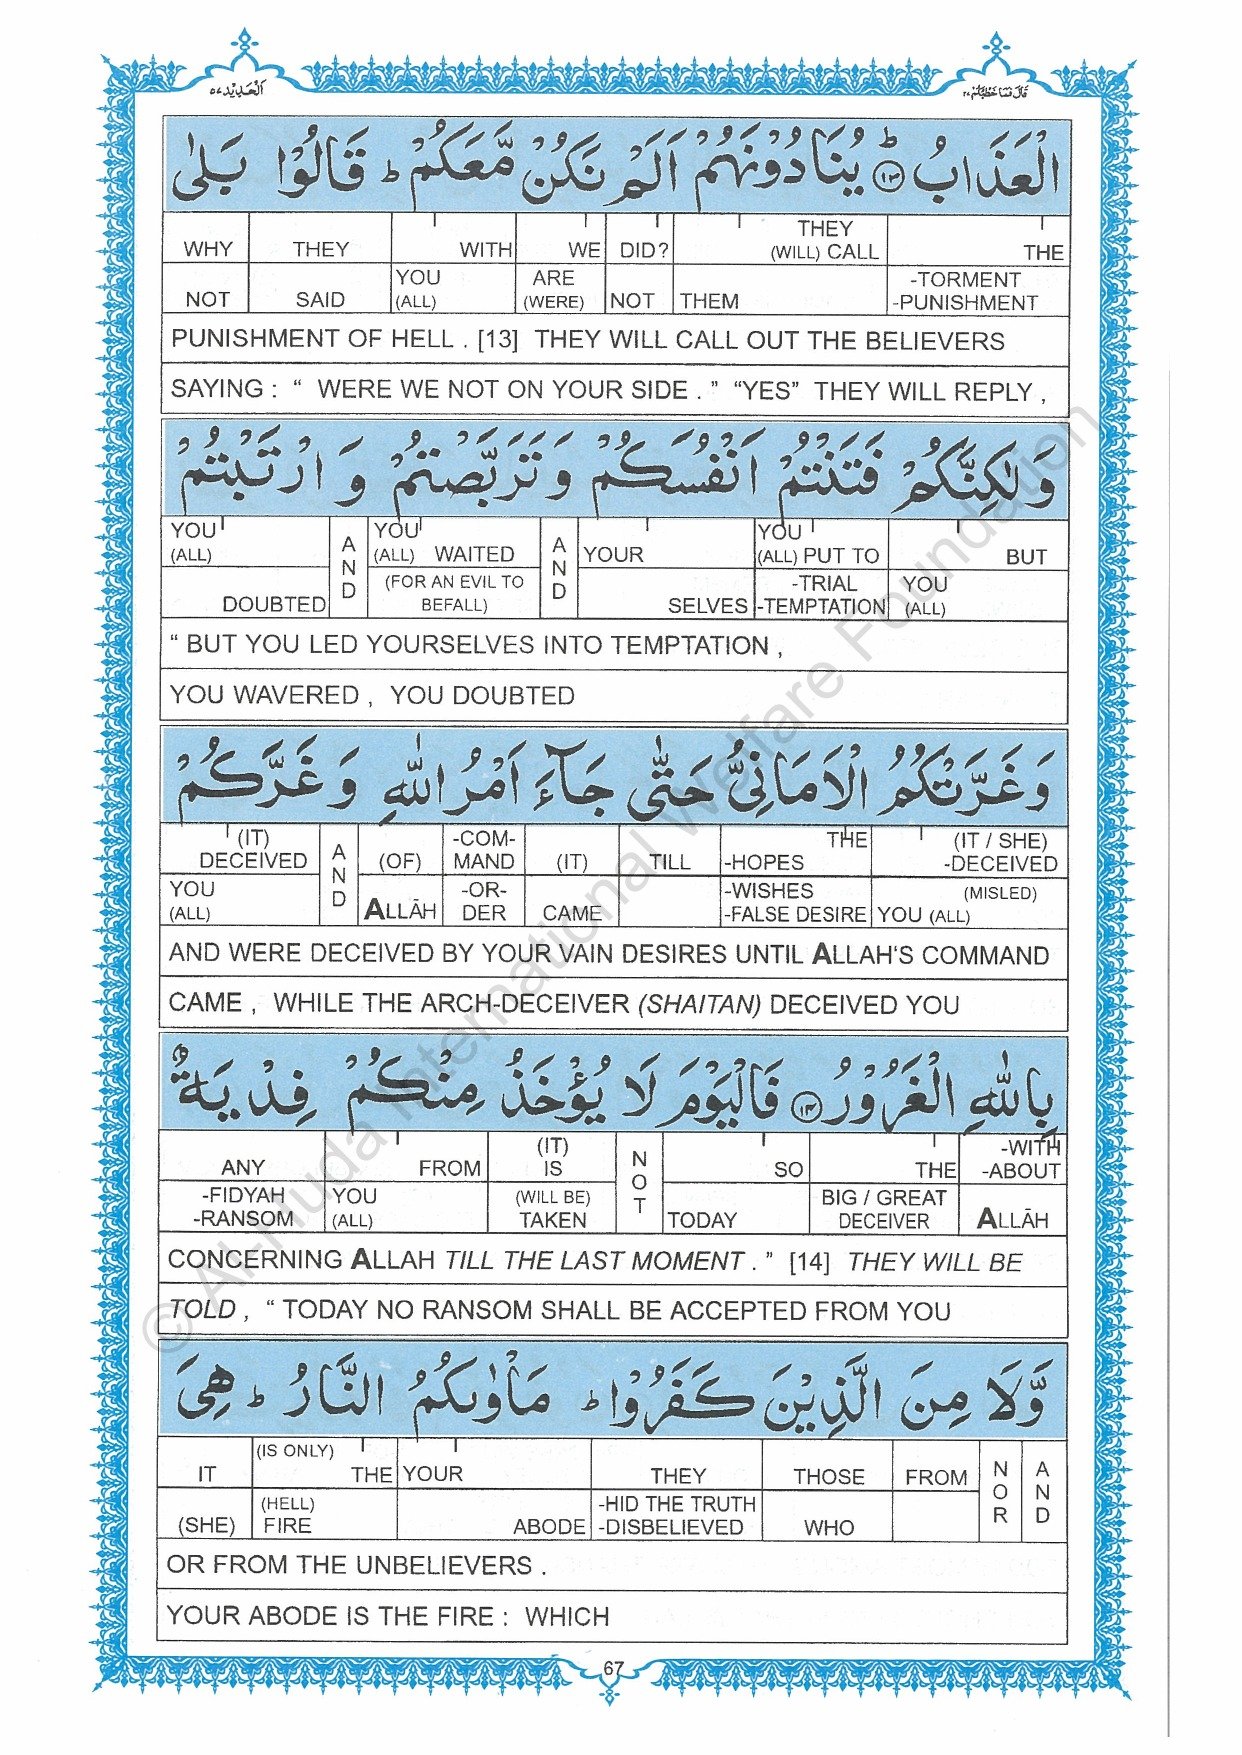 اَلْحَدِيْد ٥٧
قَالَ فَمَا خَطْبُكُمْ ٢٧
الْعَذَابُ ؕ ١٣ يُنَادُوْنَهُمْ اَلَمْ نَكُنْ مَّعَكُمْ ؕ قَالُوْا بَلٰى
WHY THEY WITH WE DID? THEY (WILL) CALL THE
NOT SAID YOU (ALL) ARE (WERE) NOT THEM -TORMENT -PUNISHMENT
PUNISHMENT OF HELL . [13] THEY WILL CALL OUT THE BELIEVERS
SAYING : “ WERE WE NOT ON YOUR SIDE . ” “YES” THEY WILL REPLY ,
وَلٰكِنَّكُمْ فَتَنْتُمْ اَنْفُسَكُمْ وَتَرَبَّصْتُمْ وَ ارْتَبْتُمْ
YOU (ALL) AND YOU (ALL) WAITED AND YOUR YOU (ALL) PUT TO BUT
DOUBTED (FOR AN EVIL TO BEFALL) SELVES -TRIAL -TEMPTATION YOU (ALL)
“ BUT YOU LED YOURSELVES INTO TEMPTATION ,
YOU WAVERED , YOU DOUBTED
وَ غَرَّتْكُمُ الْاَمَانِيُّ حَتّٰى جَآءَ اَمْرُ اللّٰهِ وَ غَرَّكُمْ
(IT) DECEIVED AND (OF) -COM-MAND (IT) TILL THE -HOPES (IT / SHE) -DECEIVED
YOU (ALL) ALLĀH -OR-DER CAME -WISHES -FALSE DESIRE (MISLED) YOU (ALL)
AND WERE DECEIVED BY YOUR VAIN DESIRES UNTIL ALLAH‘S COMMAND
CAME , WHILE THE ARCH-DECEIVER (SHAITAN) DECEIVED YOU
بِاللّٰهِ الْغَرُوْرُ ١٤ فَالْيَوْمَ لَا يُؤْخَذُ مِنْكُمْ فِدْيَةٌ
ANY FROM (IT) IS NOT SO THE -WITH -ABOUT
-FIDYAH -RANSOM YOU (ALL) (WILL BE) TAKEN TODAY BIG / GREAT DECEIVER ALLĀH
CONCERNING ALLAH TILL THE LAST MOMENT . ” [14] THEY WILL BE
TOLD , “ TODAY NO RANSOM SHALL BE ACCEPTED FROM YOU
وَّلَا مِنَ الَّذِيْنَ كَفَرُوْا ؕ مَاْوٰىكُمُ النَّارُ ؕ هِيَ
IT (IS ONLY) THE YOUR THEY THOSE FROM NOR AND
(SHE) (HELL) FIRE ABODE -HID THE TRUTH -DISBELIEVED WHO
OR FROM THE UNBELIEVERS .
YOUR ABODE IS THE FIRE : WHICH
67
© Al-Huda International Welfare Foundation